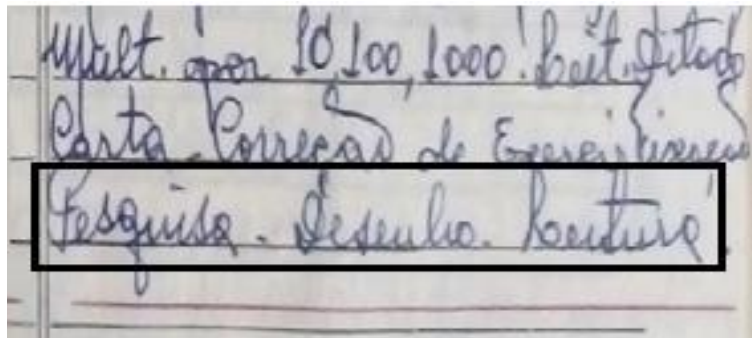 Mult. por 10,100,1000. Leit. Ditado
Carta. Correção de Exercí
Pesquisa. Desenho. Leitura.